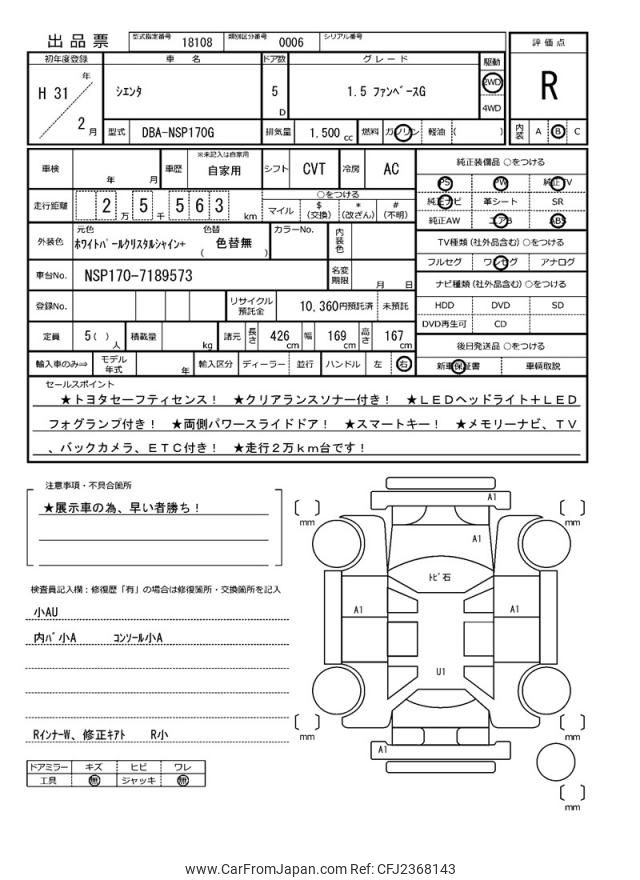 出品票 型式指定番号 18108 類別区分番号 0006 シリアル番号
評価点
R
初年度登録 車名 ドア数 グレード 駆動
H 31 年 2 月
シエンタ
5 D
1.5 ファンベースG
2WD
4WD
型式 DBA-NSP170G 排気量 1.500 cc 燃料 ガソリン 軽油 ( )
内装 A B C
車検 年 月 車歴 ※未記入は自家用 自家用 シフト CVT 冷房 AC
走行距離 2 万 5 千 5 6 3 km
○をつける
マイル $ (交換) * (改ざん) # (不明)
外装色 元色 ホワイトパールクリスタルシャイン+ 色替 ( 色替無 ) カラーNo. 内装色
車台No. NSP170-7189573 名変期限 月 日
登録No. リサイクル預託金 10,360円預託済 未預託
定員 5( ) 人 積載量 kg 諸元 長さ 426 cm 幅 169 cm 高さ 167 cm
輸入車のみ⇒ モデル年式 年 輸入区分 ディーラー 並行 ハンドル 左 右
純正装備品 ○をつける
PS PW 純正TV
純正ナビ 革シート SR
純正AW エアB ABS
TV種類 (社外品含む) ○をつける
フルセグ ワンセグ アナログ
ナビ種類 (社外品含む) ○をつける
HDD DVD SD
DVD再生可 CD
後日発送品 ○をつける
新車保証書 車輌取説
セールスポイント
★トヨタセーフティセンス! ★クリアランスソナー付き! ★LEDヘッドライト+LED
フォグランプ付き! ★両側パワースライドドア! ★スマートキー! ★メモリーナビ、TV
、バックカメラ、ETC付き! ★走行2万km台です!
注意事項・不具合箇所
★展示車の為、早い者勝ち!
検査員記入欄:修復歴「有」の場合は修復箇所・交換箇所を記入
小AU
内パ小A コンソール小A
RインナーW、修正キアト R小
ドアミラー キズ ヒビ ワレ
工具 無 ジャッキ 無
A1
mm
mm
A1
トビ石
A1
A1
U1
mm
mm
A1
mm
www.CarFromJapan.com Ref: CFJ2368143